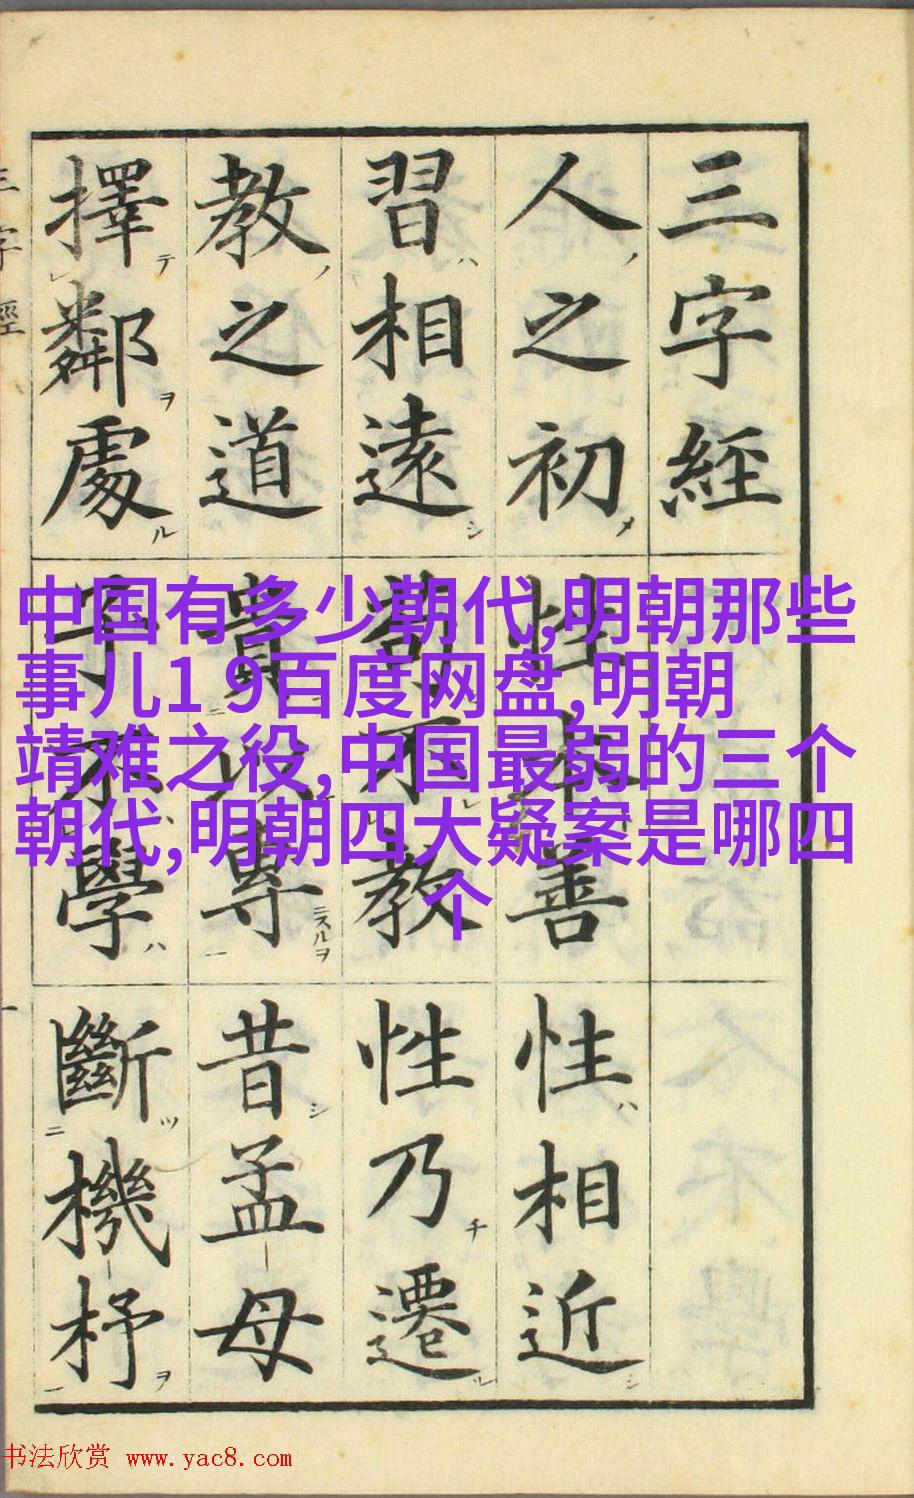 三字經
人ノ之初メ性本善性ハ相近シ
習ハ相遠シ苟不教性乃チ遷ル
教ノ之道貴以專ニスルヲ昔シ孟母
擇テ鄰ヲ處ル子不學ハ斷ツ機杼ヲ
三字經
中国有多少朝代,明朝那些
事儿1 9百度网盘,明朝
靖难之役,中国最弱的三个
朝代,明朝四大疑案是哪四
个
书法欣赏 www.yac8.com